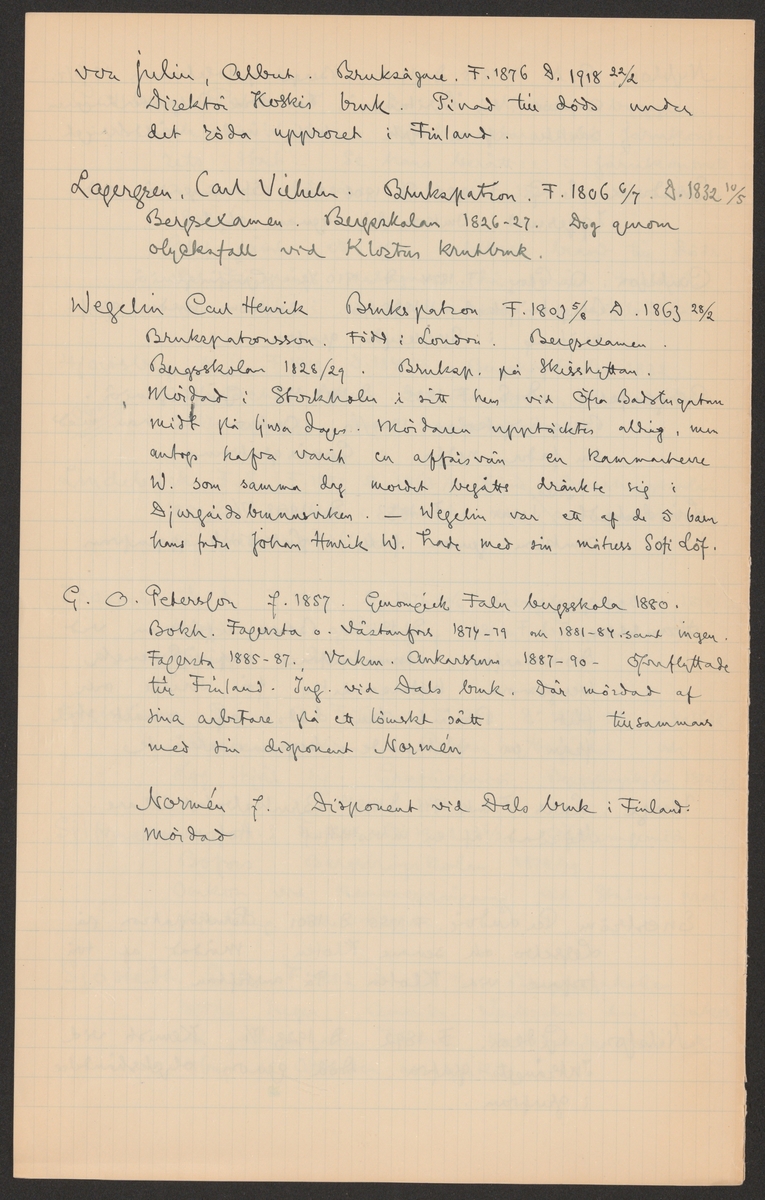 von Julin, Albert. Bruksägare. F. 1876 D. 1918 22/2
Direktör Koskis bruk. Pinad till döds under
det röda upproret i Finland.
Lagergren, Carl Vilhelm. Brukspatron. F. 1806 6/7. D. 1832 10/5
Bergsexamen. Bergsskolan 1826-27. Dog genom
olycksfall vid Klosters krutbruk.
Wegelin Carl Henrik Brukspatron F. 1803 5/8 D. 1863 28/2
Brukspatronsson. Född i London. Bergsexamen.
Bergsskolan 1828/29. Bruksp. på Skisshyttan.
Mördad i Stockholm i sitt hem vid Öfra Badstugatan
midt på ljusa dagen. Mördaren upptäcktes aldrig, men
antogs hafva varit en affärsvän en kammarherre
W. som samma dag mordet begåtts dränkte sig i
Djurgårdsbrunnsviken. — Wegelin var ett af de 5 barn
hans fader Johan Henrik W. hade med sin mätress Sofi Löf.
G. O. Petersson f. 1857. Genomgick Falu bergsskola 1880.
Bokh. Fagersta o. Västanfors 1874-79 och 1881-84. samt ingen.
Fagersta 1885-87., Verkm. Ankarsrum 1887-90 - Öfverflyttade
till Finland. Ing. vid Dals bruk. Där mördad af
sina arbetare på ett lömskt sätt tillsammans
med sin disponent Normén
Normén f. Disponent vid Dals bruk i Finland.
Mördad